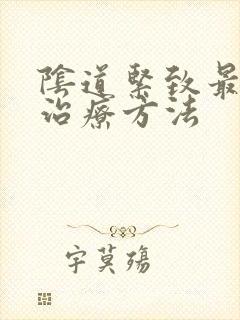 陰道緊致最
治療方法
字莫殤